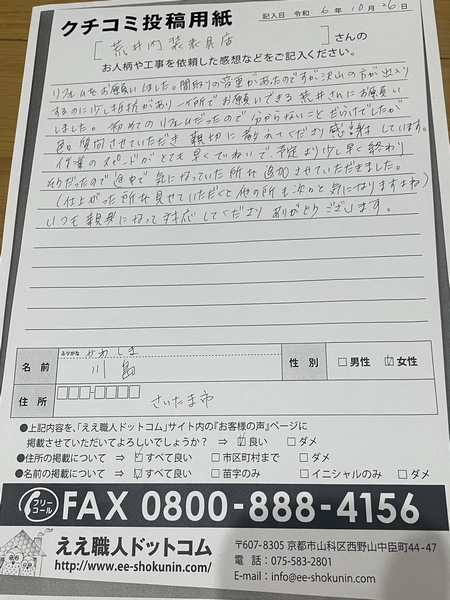 クチコミ投稿用紙
記入日 令和 6年 10月 26日
[荒井内装表具店]さんの
お人柄や工事を依頼した感想などをご記入ください。
リフォームをお願いしました。間取りの変更があったのですが沢山の方が出入り
するのに少し抵抗があり一ヶ所でお願いできる荒井さんにお願い
しました。初めてのリフォームだったので分からないことだらけでしたが
色々質問させていただき親切に教えてくださり感謝しています。
作業のスピードがとても早くていねいで、予定より少し早く終わり
そうだったので途中で気になっていた所も追加させていただきました。
(仕上がった所を見せていただくと他の所も次々と気になりますよね)
いつも親身になって対応してくださりありがとうございます。
ふりがな かわしま
名前 川島
性別 □男性 ☑女性
住所 □□□-□□□□ さいたま市
●上記内容を、「ええ職人ドットコム」サイト内の『お客様の声』ページに
掲載させていただいてよろしいでしょうか? ⇒ ☑良い □ダメ
●住所の掲載について ⇒ ☑すべて良い □市区町村まで □ダメ
●名前の掲載について ⇒ ☑すべて良い □苗字のみ □イニシャルのみ □ダメ
フリーコール FAX 0800-888-4156
ええ職人ドットコム
http://www.ee-shokunin.com/
〒607-8305 京都市山科区西野山中臣町44-47
電話:075-583-2801
E-mail:info@ee-shokunin.com